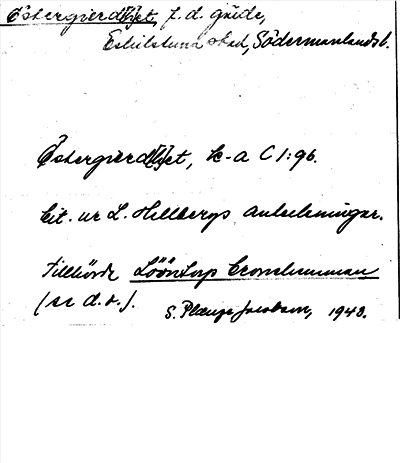 Östergierdtzet, f.d. gärde,
Eskilstuna stad, Södermanlands l.
Östergierdtzet, k-a C I:96.
Cit. ur L. Hellbergs anteckningar.
Tillhörde Löönstorp Cronohemman
(se d.o.).
S. Plænge Jacobson, 1948.